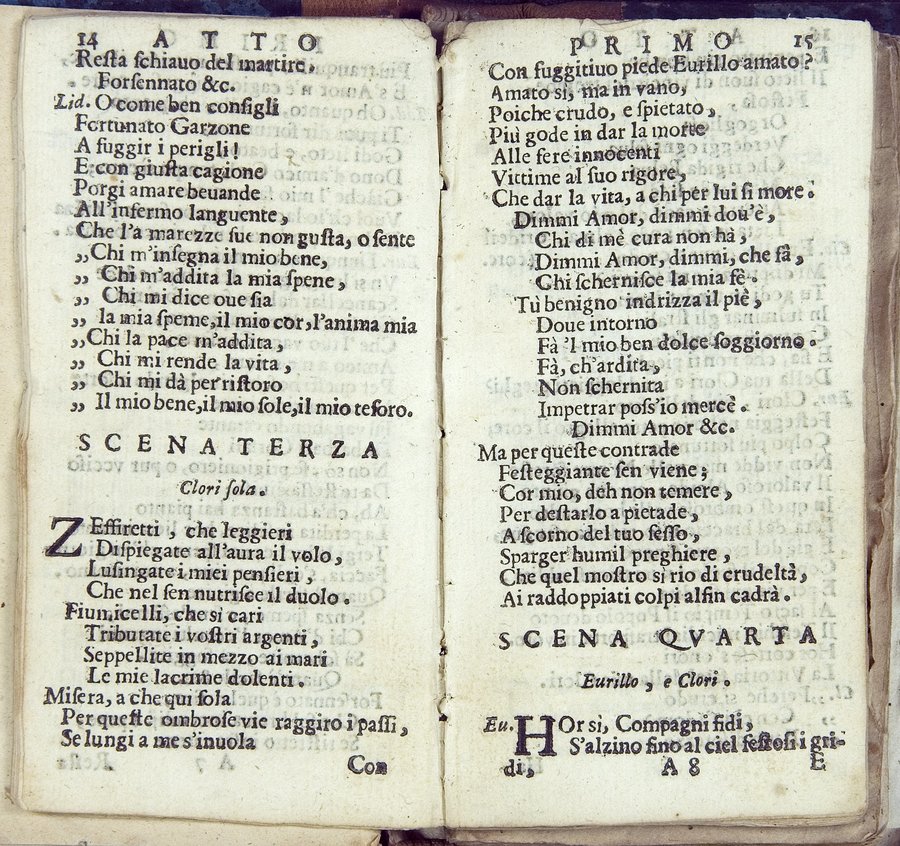 14 ATTO
Resta schiauo del martire.
Forsennato &c.
Lid. O come ben consigli
Fortunato Garzone
A fuggir i perigli!
E con giusta cagione
Porgi amare beuande
All'infermo languente,
Che l'a marezze sue non gusta, o sente
„Chi m'insegna il mio bene,
„ Chi m'addita la mia spene,
„ Chi mi dice oue sia
„ la mia speme, il mio cor, l'anima mia
„Chi la pace m'addita,
„ Chi mi rende la vita,
„ Chi mi dà per ristoro
„ Il mio bene, il mio sole, il mio tesoro.
SCENA TERZA
Clori sola.
ZEffiretti, che leggieri
Dispiegate all'aura il volo,
Lusingate i miei pensieri
Che nel sen nutrisce il duolo.
Fiumicelli, che si cari
Tributate i vostri argenti,
Seppellite in mezzo ai mari
Le mie lacrime dolenti.
Misera, a che qui sola
Per queste ombrose vie raggiro i passi,
Se lungi a me s'inuola
Con
PRIMO 15
Con fuggitiuo piede Eurillo amato?
Amato si, ma in vano,
Poiche crudo, e spietato,
Più gode in dar la morte
Alle fere innocenti
Vittime al suo rigore,
Che dar la vita, a chi per lui si more.
Dimmi Amor, dimmi dou'è,
Chi di mè cura non hà,
Dimmi Amor, dimmi, che fà,
Chi schernisce la mia fè.
Tu benigno indrizza il piè,
Doue intorno
Fà 'l mio ben dolce soggiorno.
Fà, ch'ardita,
Non schernita
Impetrar poss'io mercè.
Dimmi Amor &c.
Ma per queste contrade
Festeggiante sen viene;
Cor mio, deh non temere,
Per destarlo a pietade,
A scorno del tuo sesso,
Sparger humil preghiere,
Che quel mostro sì rio di crudeltà,
Ai raddoppiati colpi alfin cadrà.
SCENA QVARTA
Eurillo, e Clori.
Eu. HOr si, Compagni fidi,
S'alzino fino al ciel festosi i gri-
di,
A 8 E